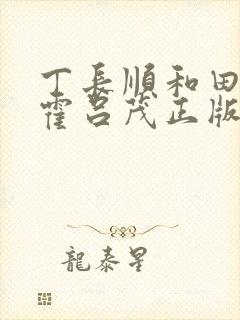 丁長順和田
霍呂茂正版
龍泰星